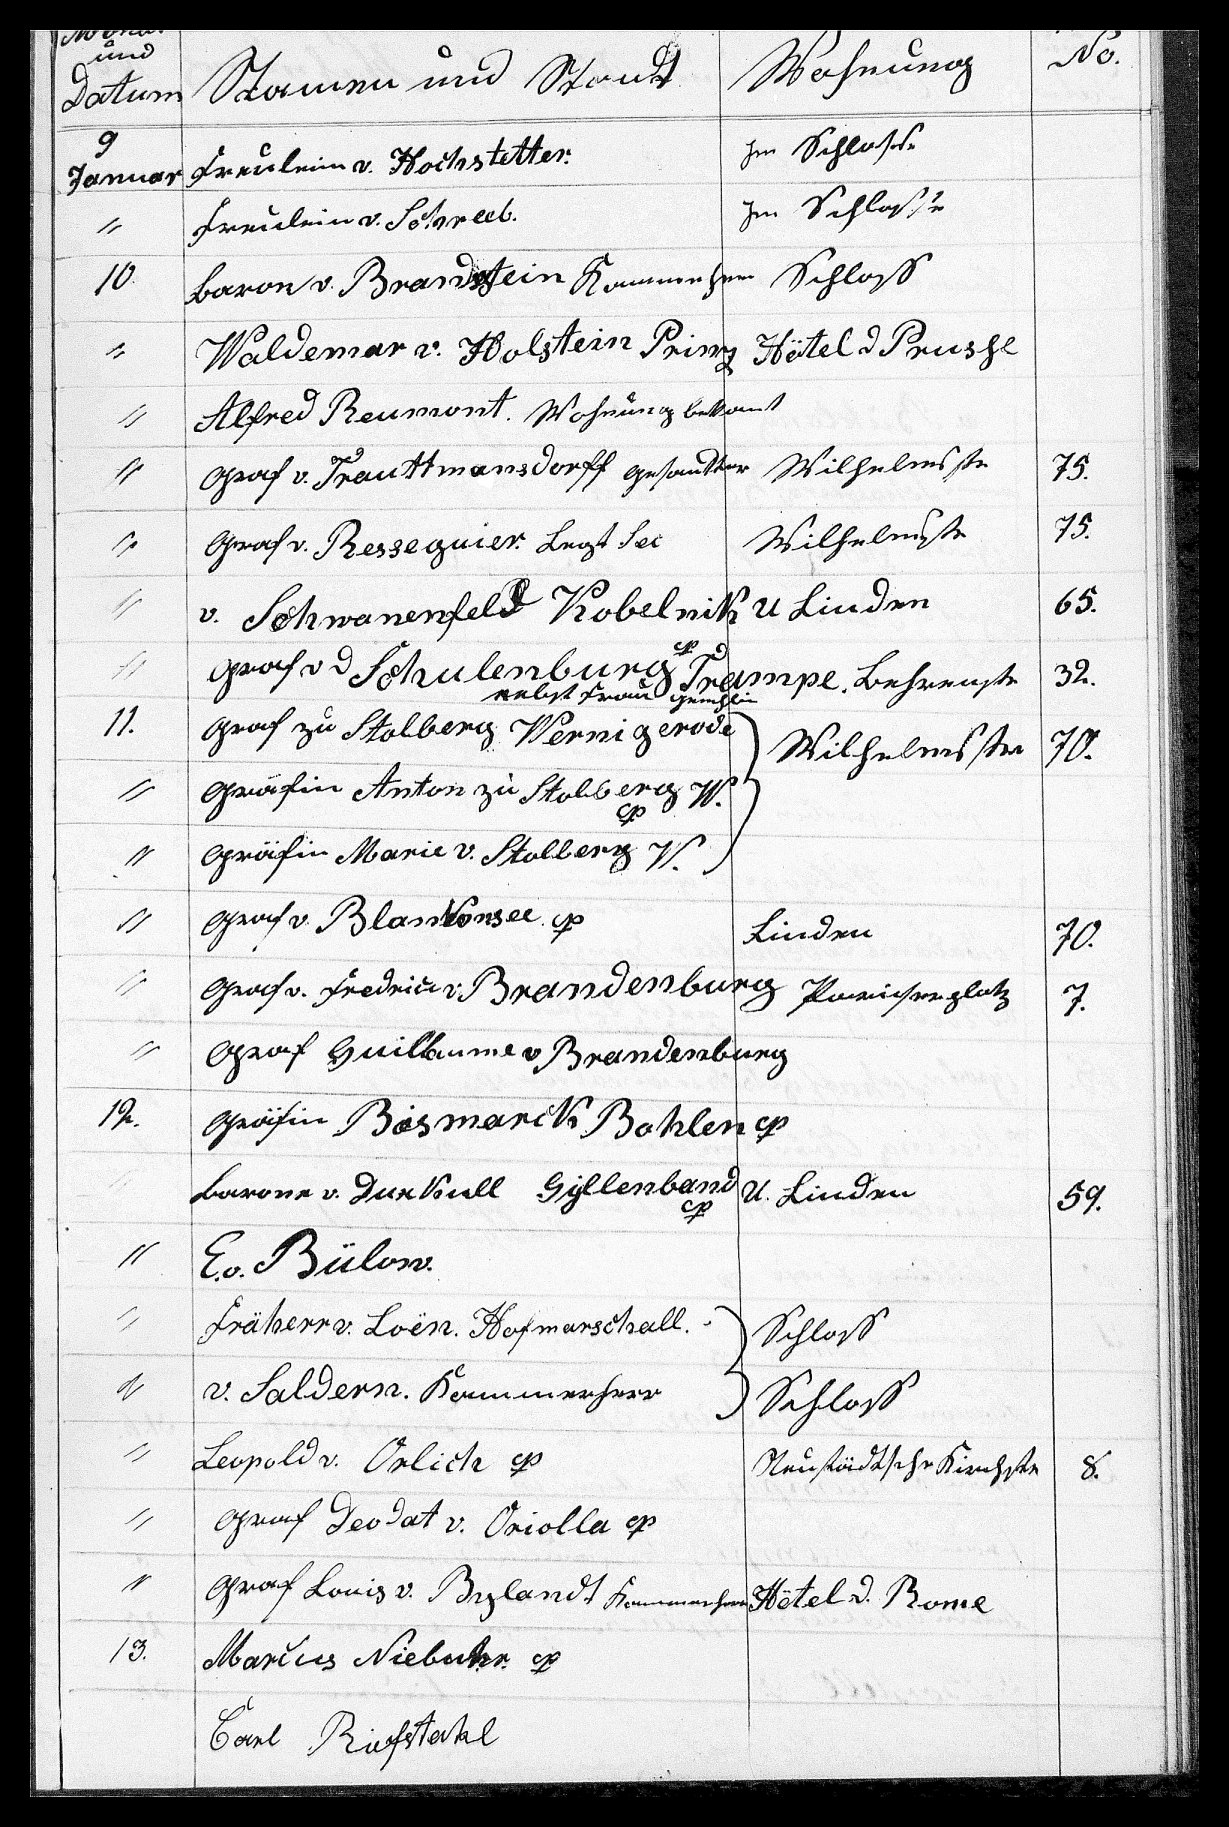 Monat
und
Datum Namen und Standt Wohnung No.
9
Januar Freulein v. Hochstetter. Im Schlosse
" Freulein v. Schreeb. Im Schlosse
10 Baron v. Brandstein Kammerherr Schloss
" Waldemar v. Holstein Prinz Hôtel d Prusse
" Alfred Reumont. Wohnung bekant
" Graf v. Trauttmansdorff Gesandter Wilhelmsstr 75.
" Graf v. Resseguier. Legt Sec Wilhelmstr 75.
" v. Schwanenfeld Kobelnik U Linden 65.
" Graf v d Schulenburg Trampe. Behrenstr 32.
nebst Frau Gemahlin
11. Graf zu Stolberg Wernigerode Wilhelmsstr 70.
" Gräfin Anton zu Stolberg W.
" Gräfin Marie v. Stolberg W.
" Graf v. Blankensee. Linden 70.
" Graf v. Fredrich v. Brandenburg Pariserplatz 7.
" Graf Guillaume v Brandenburg
12. Gräfin Bismarck Bohlen
Barone v. Duekull Gyllenband U. Linden 59.
" E. v. Bülow.
" Fräherr v. Loën. Hofmarschall. Schloss
" v. Saldern. Kammerherr Schloss
" Leopold v. Orlich Neustädtsche Kirchstr 8.
" Graf Deodat v. Oriolla
" Graf Louis v. Bylandt Kammerherr Hôtel d. Rome
13. Marcus Niebuhr.
Carl Riefstahl